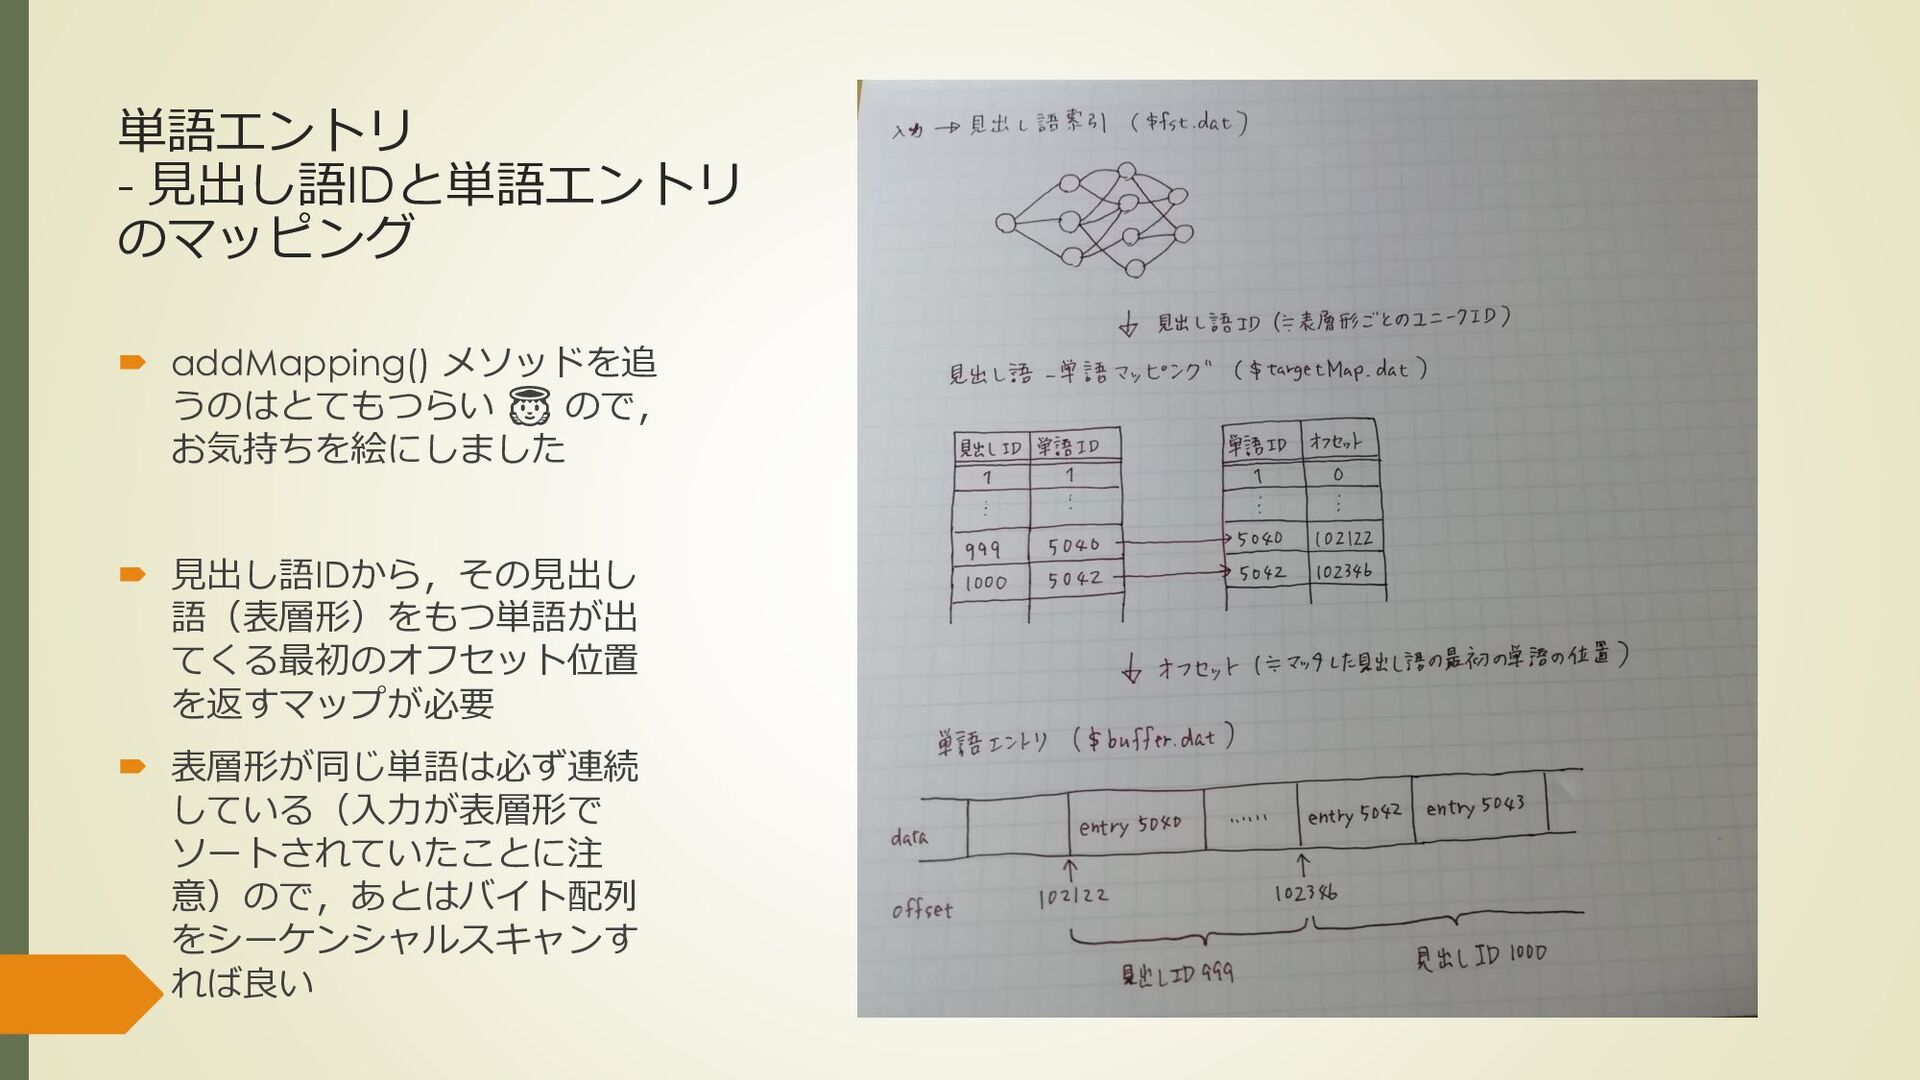 単語エントリ
- 見出し語IDと単語エントリ
のマッピング
addMapping() メソッドを追
うのはとてもつらい 😇 ので，
お気持ちを絵にしました
見出し語IDから，その見出し
語（表層形）をもつ単語が出
てくる最初のオフセット位置
を返すマップが必要
表層形が同じ単語は必ず連続
している（入力が表層形で
ソートされていたことに注
意）ので，あとはバイト配列
をシーケンシャルスキャンす
れば良い
入力 → 見出し語索引 ($fst.dat)
↓ 見出し語ID (≒表層形ごとのユニークID)
見出し語 - 単語マッピング ($targetMap.dat)
見出しID 単語ID
1 1
⋮ ⋮
999 5040
1000 5042
単語ID オフセット
1 0
⋮ ⋮
5040 102122
5042 102346
↓ オフセット (≒マッチした見出し語の最初の単語の位置)
単語エントリ ($buffer.dat)
data entry 5040 ...... entry 5042 entry 5043
offset 102122 102346
見出しID 999 見出しID 1000